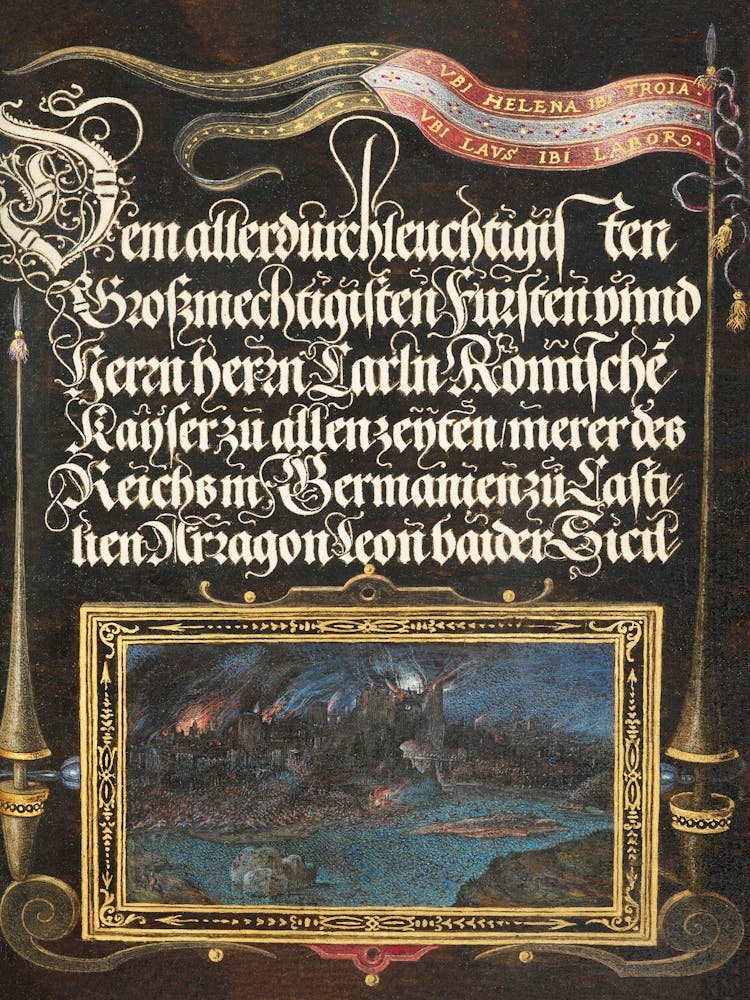 VBI HELENA IBI TROIA
VBI LAVS IBI LABOR
Dem allerdurchleuchtigisten
Großmechtigisten Fürsten vnnd
Herrn herrn Carln Römischē
Kaÿser zu allen zeÿten / merer des
Reichs in Germanien zu Casti/
lien Arragon Leon baider Sicil/